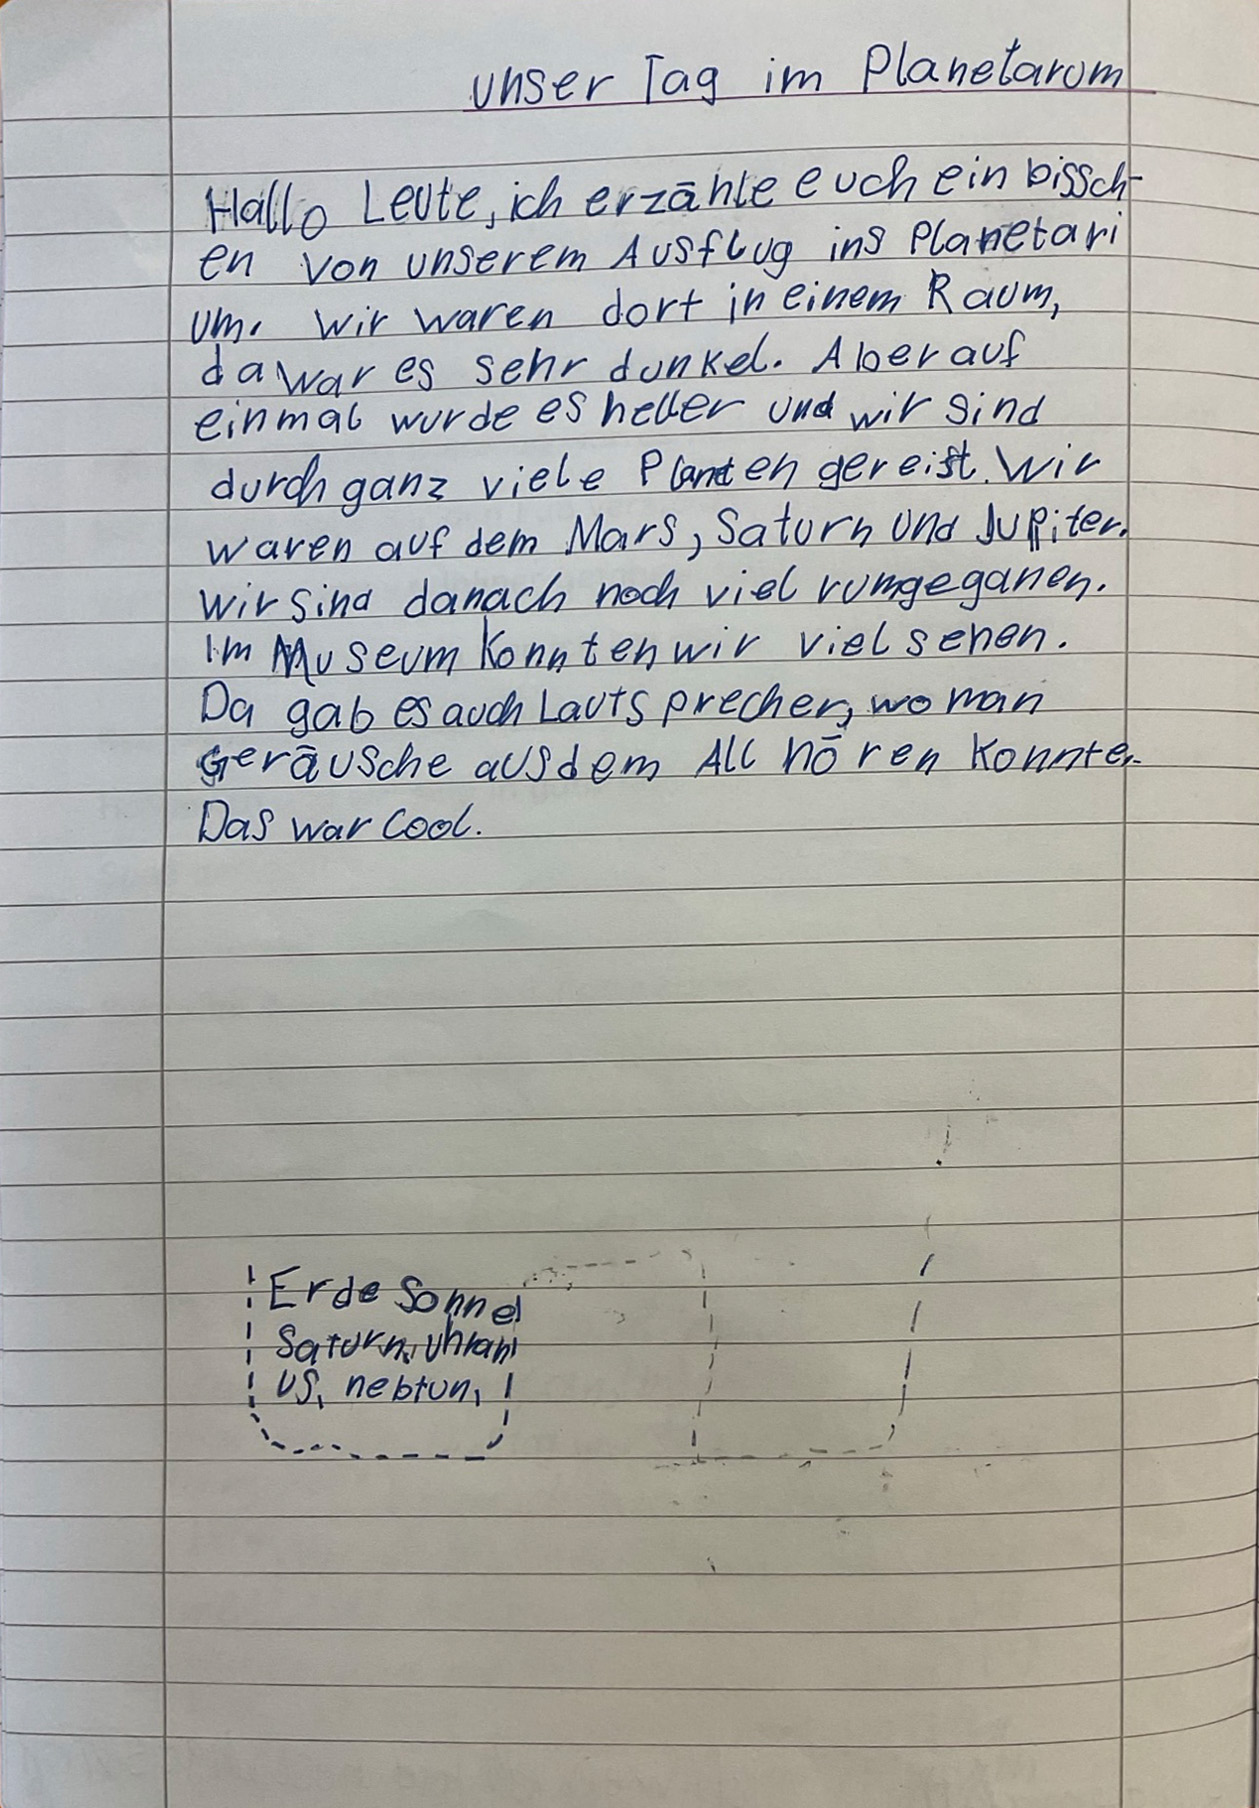 unser Tag im Planetarum
Hallo Leute, ich erzähle euch ein bissch-
en von unserem Ausflug ins Planetari
um. Wir waren dort in einem Raum,
da war es sehr dunkel. Aber auf
einmal wurde es heller und wir sind
durch ganz viele Planten gereist. Wir
waren auf dem Mars, Saturn und Jupiter.
wir sind danach noch viel rumgeganen.
Im Museum konnten wir viel sehen.
Da gab es auch Lautsprecher, wo man
Geräusche aus dem All hören konnte.
Das war cool.
Erde Sonne
Saturn, uhran
us, nebtun,